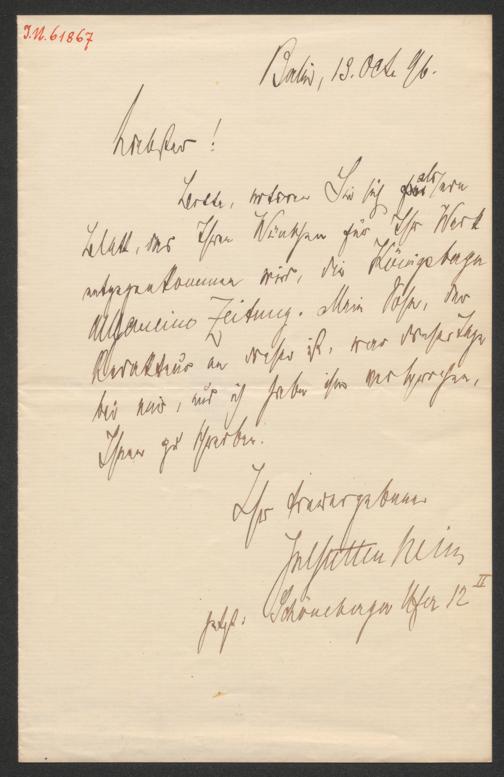 J.N. 61867
Berlin, 13. Oct. 96.
Liebster!
Bitte, notiren Sie sich als
Blatt, das Ihren Wünschen für Ihr Werk
entgegenkommen wird, die Königsberger
Allgemeine Zeitung. Mein Sohn, der
Redakteur an dieser ist, war dieser Tage
bei mir, und ich habe ihm versprochen,
Ihnen zu schreiben.
Ihr treuergebener
jetzt: Schöneberger Ufer 12 II